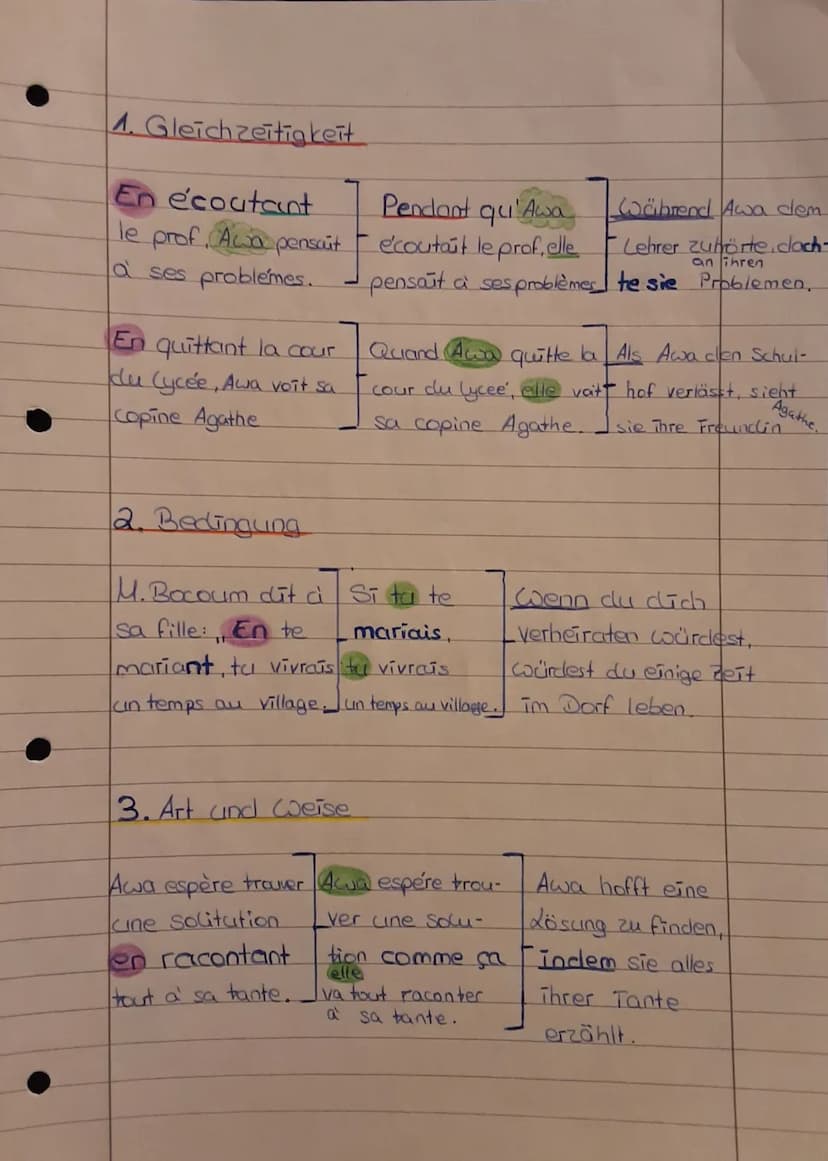 1. Gleichzeitigkeit
En écoutant
le prof, Awa pensait
à ses problémes.
Pendant qu'Awa
écoutait le prof, elle
pensait à ses problèmes
Während Awa dem
Lehrer zuhörte, dach-
te sie an ihren Problemen.
En quittant la cour
du lycée, Awa voit sa
copine Agathe
Quand Awa quitte la
cour du lyceé, elle voit
sa copine Agathe.
Als Awa den Schul-
hof verlässt, sieht
sie ihre Freundin Agathe.
2. Bedingung
M. Bocoum dit à
sa fille: „En te
mariant, tu vivrais
un temps au village.
Si tu te
mariais,
tu vivrais
un temps au village.
Wenn du dich
verheiraten würdest,
würdest du einige Zeit
im Dorf leben.
3. Art und Weise
Awa espère trouver
une solitution
en racontant
tout à sa tante.
Awa espére trou-
ver une solu-
tion comme ça
elle
va tout raconter
à sa tante.
Awa hofft eine
Lösung zu finden,
indem sie alles
ihrer Tante
erzählt.